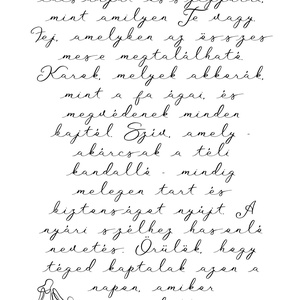 mint amilyen Te vagy.
Fej, amelyben az összes
mese megtalálható
Karok, melyek akkorák,
mint a fa ágai, és
megvédenek minden
bajtól Szív, amely -
akárcsak a téli
kandalló - mindig
melegen tart és
biztonságot nyújt. A
nyári szélhez hasonló
nevetés. Örülök, hogy
téged kaptalak azon a
napon, amikor